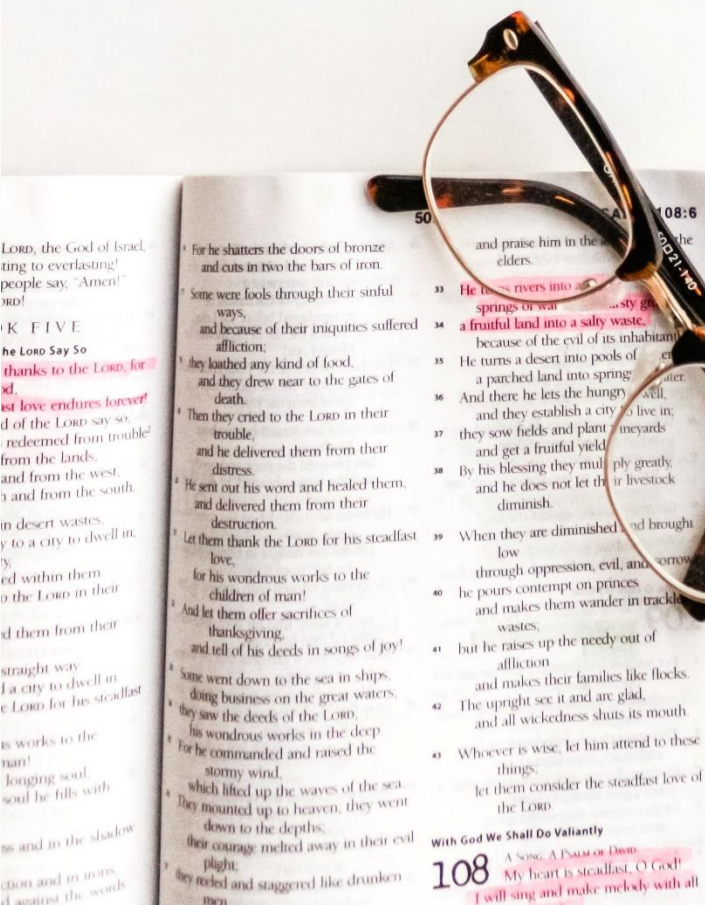 LORD, the God of Israel,
ting to everlasting!
people say, "Amen!"
ORD!
K FIVE
he LORD Say So
thanks to the LORD, for
od,
ast love endures forever!
d of the LORD say so,
redeemed from trouble
from the lands,
and from the west,
h and from the south.
in desert wastes,
y to a city to dwell in;
y,
ed within them.
o the LORD in their
d them from their
straight way
l a city to dwell in.
e LORD for his steadfast
is works to the
man!
longing soul,
soul he fills with
ss and in the shadow
ction and in irons,
d against the words
For he shatters the doors of bronze
and cuts in two the bars of iron.
Some were fools through their sinful
ways,
and because of their iniquities suffered
affliction;
they loathed any kind of food,
and they drew near to the gates of
death.
Then they cried to the LORD in their
trouble,
and he delivered them from their
distress.
He sent out his word and healed them,
and delivered them from their
destruction.
Let them thank the LORD for his steadfast
love,
for his wondrous works to the
children of man!
And let them offer sacrifices of
thanksgiving,
and tell of his deeds in songs of joy!
Some went down to the sea in ships,
doing business on the great waters;
they saw the deeds of the LORD,
his wondrous works in the deep.
For he commanded and raised the
stormy wind,
which lifted up the waves of the sea.
They mounted up to heaven; they went
down to the depths;
their courage melted away in their evil
plight;
they reeled and staggered like drunken
men
50 108:6
and praise him in the the
elders.
33 He rivers into a
springs of sty gr
34 a fruitful land into a salty waste,
because of the evil of its inhabitant
35 He turns a desert into pools of er,
a parched land into springs ater.
36 And there he lets the hungry well,
and they establish a city to live in;
37 they sow fields and plant vineyards
and get a fruitful yield.
38 By his blessing they multiply greatly,
and he does not let their livestock
diminish.
39 When they are diminished and brought
low
through oppression, evil, and sorrow,
40 he pours contempt on princes
and makes them wander in trackle
wastes;
41 but he raises up the needy out of
affliction
and makes their families like flocks.
42 The upright see it and are glad,
and all wickedness shuts its mouth.
43 Whoever is wise, let him attend to these
things;
let them consider the steadfast love of
the LORD.
With God We Shall Do Valiantly
108 A SONG. A PSALM OF DAVID.
My heart is steadfast, O God!
I will sing and make melody with all
50□21-140